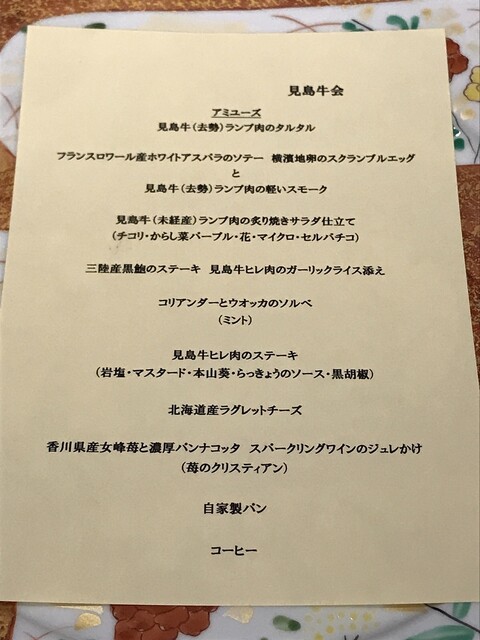 見島牛会
アミユーズ
見島牛（去勢）ランプ肉のタルタル
フランスロワール産ホワイトアスパラのソテー　横濱地卵のスクランブルエッグ
と
見島牛（去勢）ランプ肉の軽いスモーク
見島牛（未経産）ランプ肉の炙り焼きサラダ仕立て
（チコリ・からし菜パープル・花・マイクロ・セルバチコ）
三陸産黒鮑のステーキ　見島牛ヒレ肉のガーリックライス添え
コリアンダーとウオッカのソルベ
（ミント）
見島牛ヒレ肉のステーキ
（岩塩・マスタード・本山葵・らっきょうのソース・黒胡椒）
北海道産ラグレットチーズ
香川県産女峰苺と濃厚パンナコッタ　スパークリングワインのジュレかけ
（苺のクリスティアン）
自家製パン
コーヒー